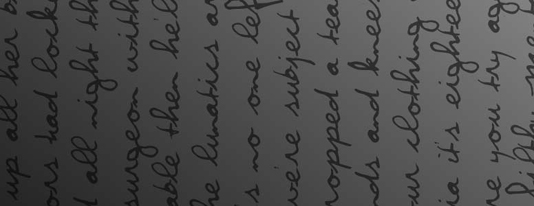 up all her
had lock
all night th
surgeon with
able then he'll
lunatics a
no one lef
were subject
opped a tea
and knees
clothing
it's eightee
you try ag